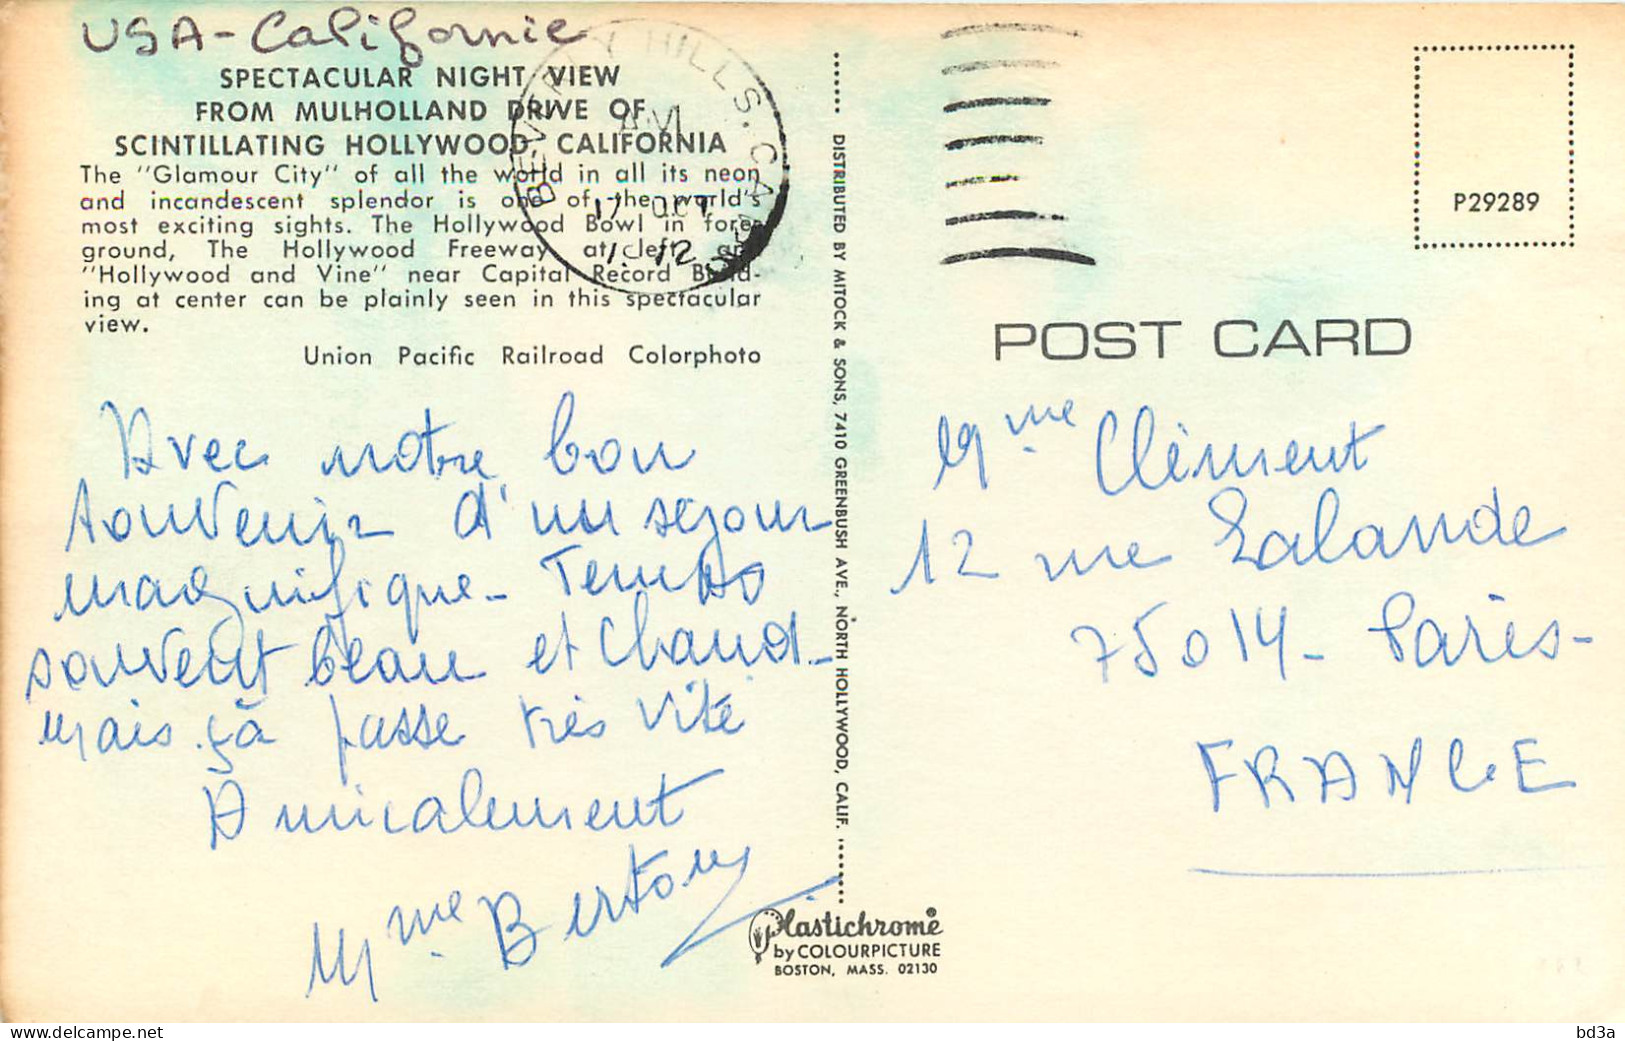 USA-Californie
SPECTACULAR NIGHT VIEW
FROM MULHOLLAND DRIVE OF
SCINTILLATING HOLLYWOOD, CALIFORNIA
The "Glamour City" of all the world in all its neon
and incandescent splendor is one of the world's
most exciting sights. The Hollywood Bowl in fore-
ground, The Hollywood Freeway at left and
"Hollywood and Vine" near Capital Record Build-
ing at center can be plainly seen in this spectacular
view.
Union Pacific Railroad Colorphoto
BEVERLY HILLS. CA
AM
17 OCT
Avec notre bon
souvenir d'un séjour
magnifique - Temps
souvent beau et chaud -
mais çà passe très vite
Amicalement
Mme Bertou
DISTRIBUTED BY MITOCK & SONS, 7410 GREENBUSH AVE., NORTH HOLLYWOOD, CALIF.
Plastichrome
by COLOURPICTURE
BOSTON, MASS. 02130
P29289
POST CARD
Mme Clément
12 rue Lalande
75014 - Paris -
FRANCE
bd3a